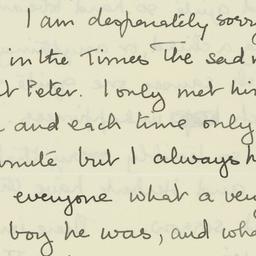 I am desperately sorry
in the Times the sad
Peter. I only met
and each time only
but I always
everyone what a
boy he was, and